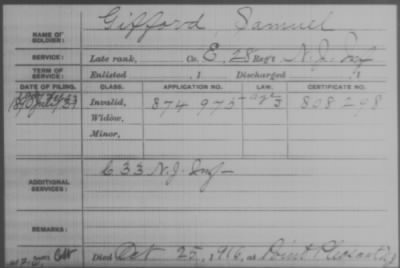 Gifford, Samuel
NAME OF
SOLDIER:
SERVICE: Late rank, Co. E, 28 Reg't N.J. Inf
TERM OF
SERVICE: Enlisted , 1 Discharged , 1
DATE OF FILING. CLASS. APPLICATION NO. LAW. CERTIFICATE NO.
1890 July 31 Invalid, 874 975 808 298
Widow,
Minor,
ADDITIONAL
SERVICES: C 33 N.J. Inf
REMARKS:
Died Oct 25, 1916, at Point Pleasant N.J.